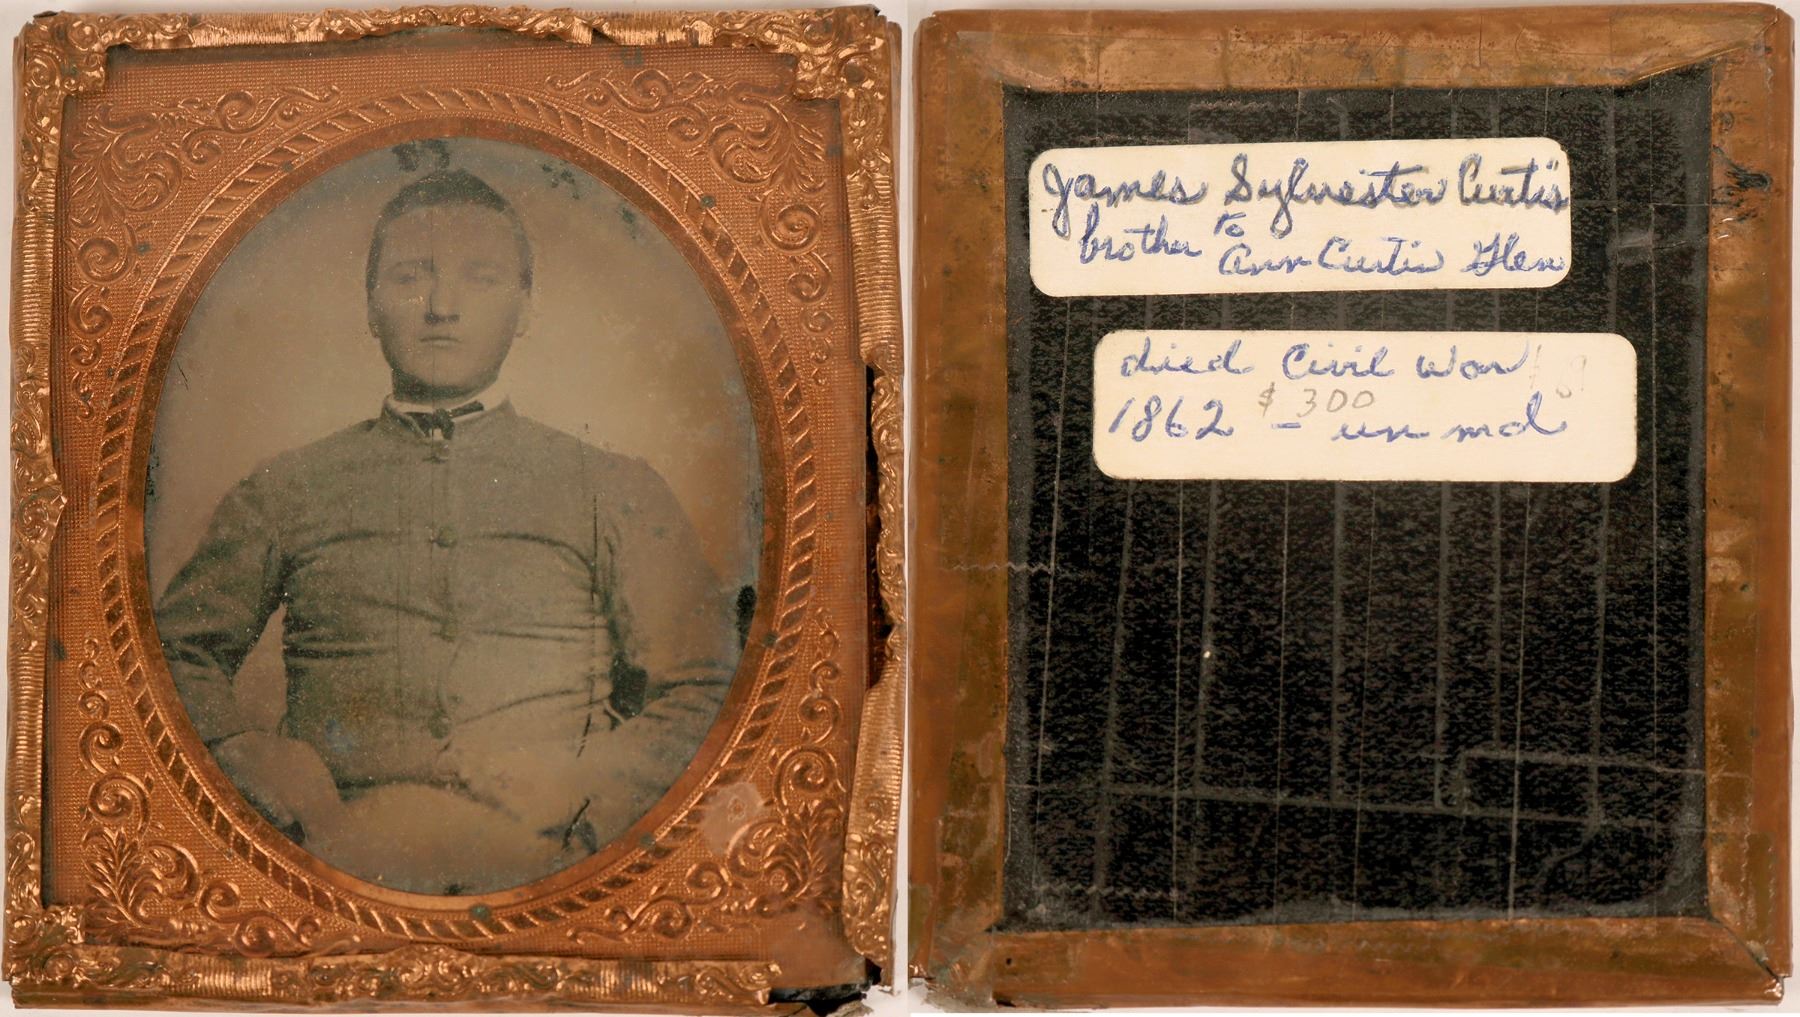 James Sylvester Curtis
brother to
Ann Curtis Glen
died Civil War
$300
1862 - un md